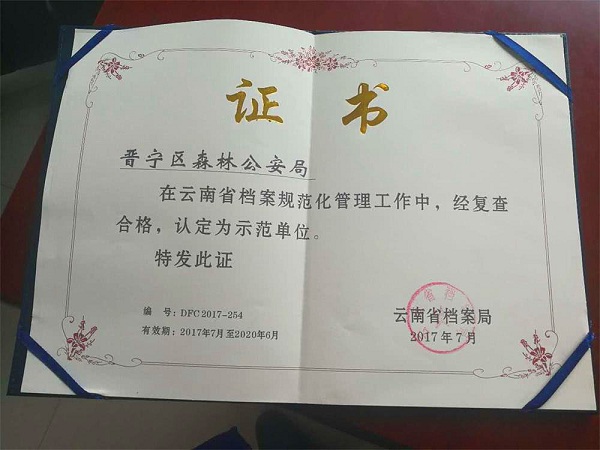 证书
晋宁区森林公安局
在云南省档案规范化管理工作中，经复查
合格，认定为示范单位。
特发此证
编 号：DFC 2017-254
有效期：2017年7月至2020年6月
云南省档案局
2017年7月